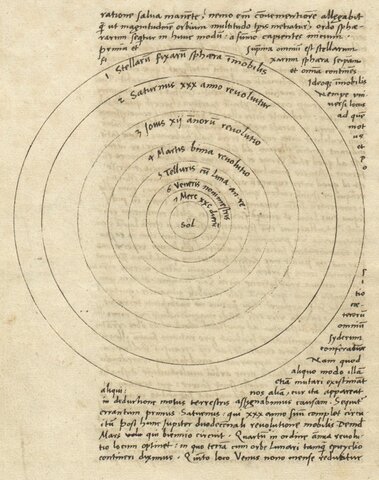 ratione salva manete, nemo em̄ convenientiore allegabit
q̄ ut magnitudinē orbium multitudo tp̄s metiatur, ordo sphæ
rarum sequit̄ in hunc modū: a sūmo capientes initium.
prima et suprema omniū est stellarum
fi xarum sphæra seipsam
et om̄a continēs
Ideoq̄ imobilis
nempe uni
versi locus
ad quē
mot
us
et
p
1 Stellarū fixarū sphæra imobilis
2 Saturnus xxx anno revolvitur
3 Iovis xij añorū revolutio
4 Martis bima revolutio
5 Telluris cū Luna an re
6 Veneris nonimestris
7 Merc xxc dierū
Sol
S
i
tio
ne
terorū
omniū
syderum
conferatur
Nam quod
aliquo modo illā
etiā mutari existimāt
aliqui: nos aliā, cur ita appareat
in deductione motus terrestris assignabimus causam. Sequit̄
errantium primus Saturnus: qui xxx anno suū complet circu
itū. Post hunc Iupiter duodecennali revolutione mobilis. Deinde
Mars qui biennio circuit. Quartū in ordine añua revolu
tio locum optinet: in quo terrā cum orbe Lunari tanq̄ epicyclio
contineri diximus. Quīto loco Venus nono mense reducitur